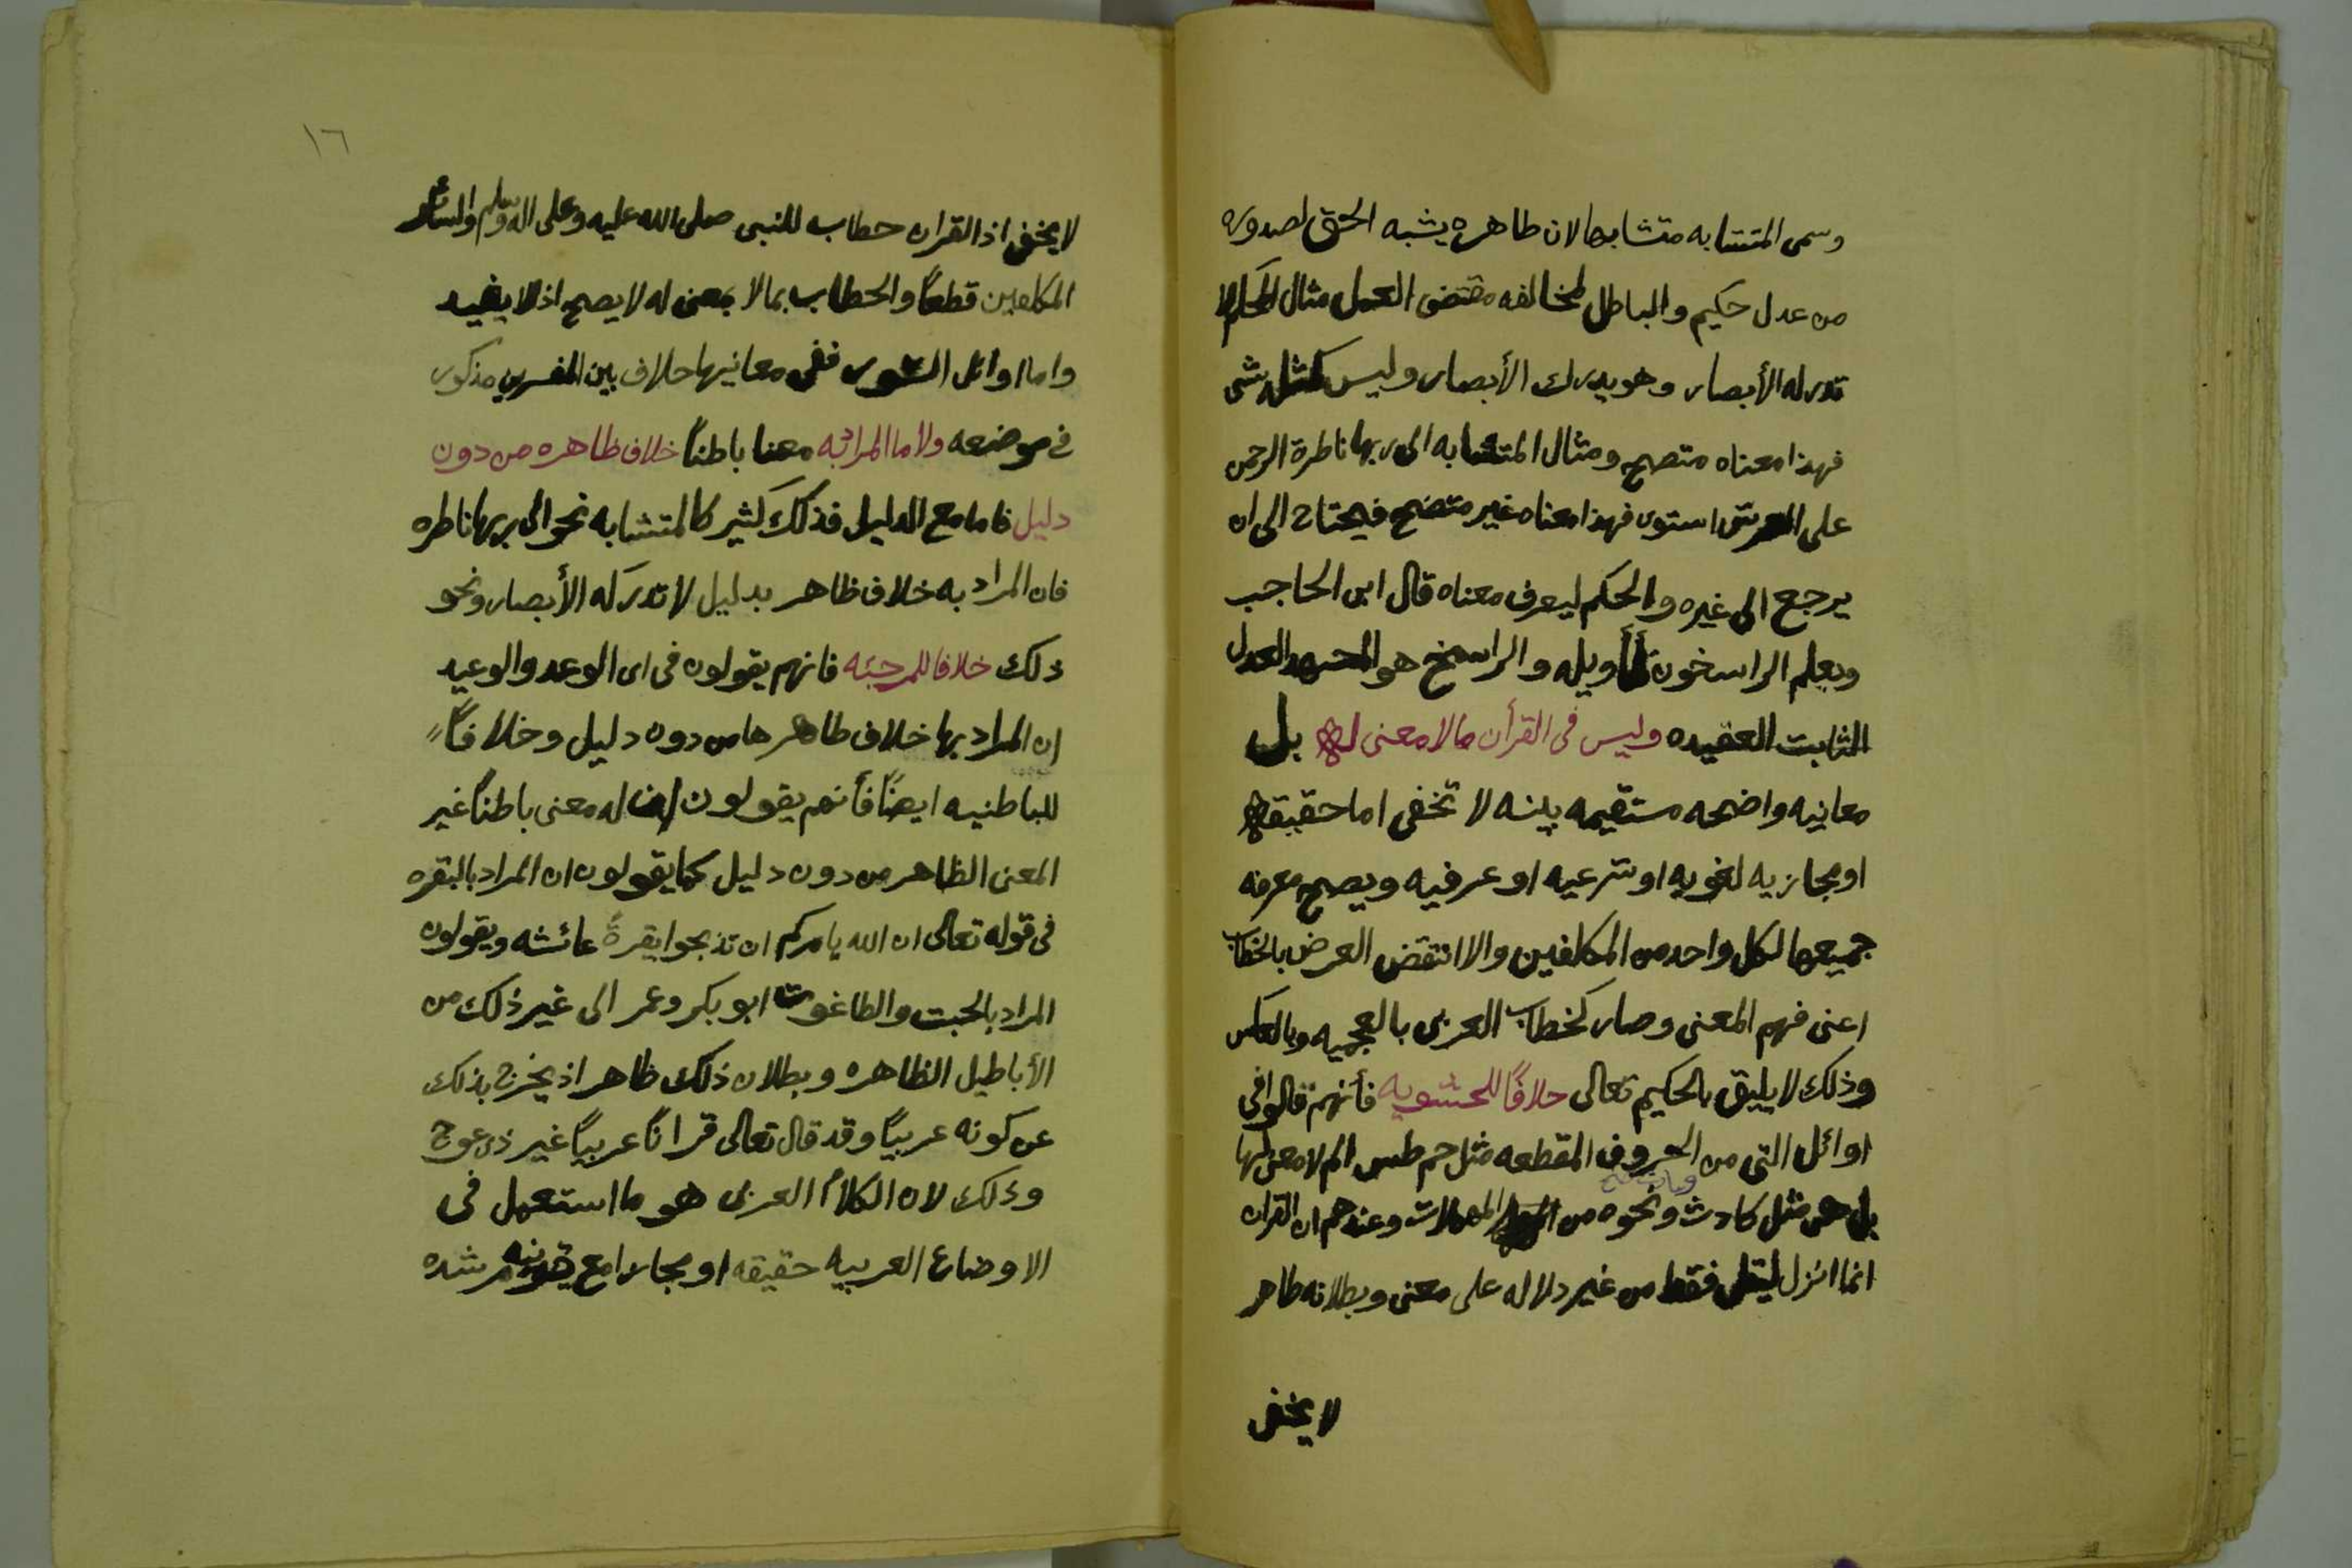 وسمى المتشابه متشابها لان طاهره يشبه الحق لصدوره
من عدل حكيم والباطل لمخالفه مقتضى العمل مثال المحكم لا
تدركه الأبصار وهو يدرك الأبصار وليس كمثله شى
فهذا معناه متصح ومثال المتشابه الى ربها ناطرة الرحمن
على العرش استوى فهذا معناه غير متضح فيحتاج الى ان
يرجع الى غيره والحكم ليعرف معناه قال ابن الحاجب
ويعلم الراسخون تأويله والراسخ هو المجتهد العدل
الثابت العقيده وليس فى القرأن مالا معنى له بل
معانيه واضحه مستقيمه بينه لا تخفى اما حقيقه
او مجازيه لغويه او شرعيه او عرفيه ويصح معرفه
جميعها لكل واحد من المكلفين والا انتقض العرض بالخطاب
اعنى فهم المعنى وصار كخطاب العربى بالعجميه وبالعكس
وذلك لا يليق بالحكيم تعالى خلافًا للحشويه فأنهم قالوا فى
اوائل التى من الحروف المقطعه مثل حم طس الم لا معنى لها
بل هى مثل كادث ونحوه من المهملات وعندهم ان القران
انما انزل ليتلى فقط من غير دلاله على معنى وبطلانه طاهر
لا يخفى
١٦
لا يخفى اذ القران حطاب للنبى صلى الله عليه وعلى اله وسلم ولسائر
المكلفين قطعًا والحطاب بما لا معنى له لا يصح اذ لا يفيد
واما اوائل السور ففى معانيها حلاف بين المفسرين مذكور
فى موضعه ولا ما المراد به معنا باطنًا خلاف ظاهره من دون
دليل فاما مع الدليل فذلك كثير كالمتشابه نحو الى ربها ناطره
فان المراد به خلاف ظاهر بدليل لا تدركه الأبصار ونحو
ذلك خلافا للمرجئه فانهم يقولون فى اى الوعد والوعيد
ان المراد بها خلاف طاهرها من دون دليل وخلافًا
للباطنيه ايضًا فأنهم يقولون ان له معنى باطنًا غير
المعنى الظاهر من دون دليل كما يقولون ان المراد بالبقره
فى قوله تعالى ان الله يامركم ان تذبحوا بقرةً عائشه ويقولون
المراد بالجبت والطاغوت ابو بكر وعمر الى غير ذلك من
الأباطيل الظاهره وبطلان ذلك ظاهر اذ يخرج بذلك
عن كونه عربيًا وقد قال تعالى قرانًا عربيًا غير ذى عوج
وذلك لان الكلام العربى هو ما استعمل فى
الاوضاع العربيه حقيقه او مجازا مع قرينه مرشده